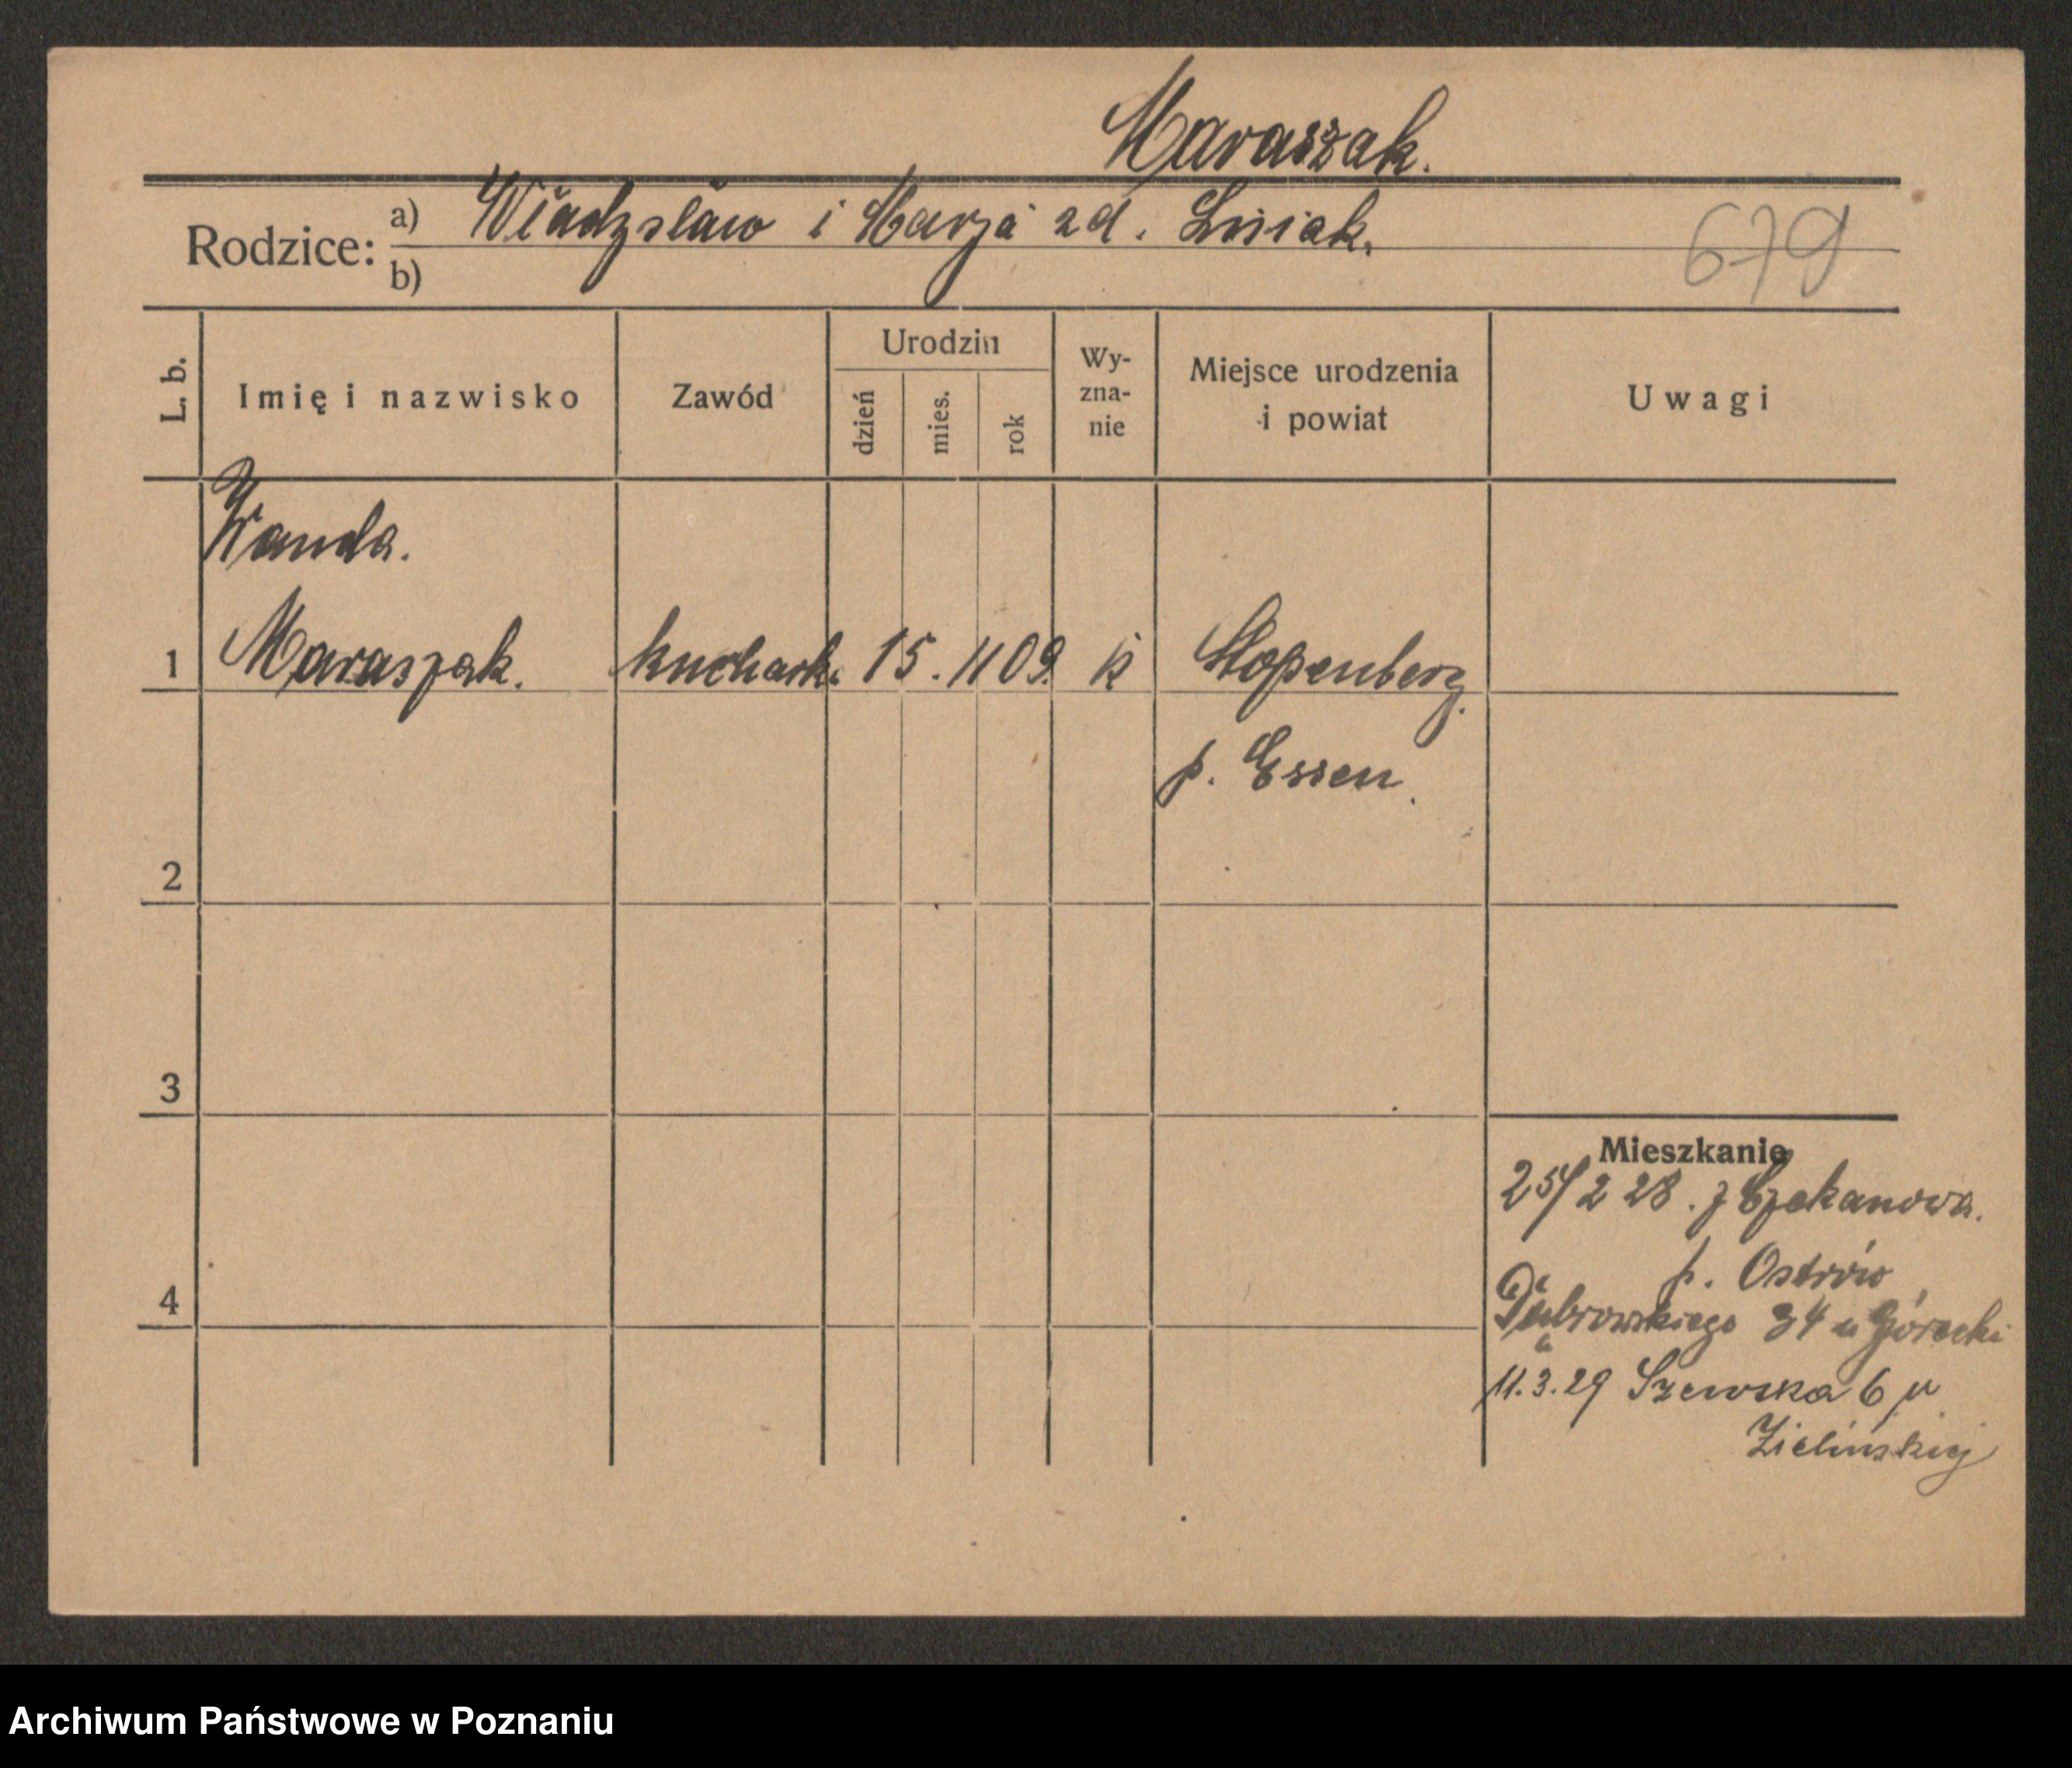 Maraszak.
Rodzice: a) Władzsław i Marja zd. Liśiak.
b)
679
L. b.
Imię i nazwisko
Zawód
Urodzin
dzień
mies.
rok
Wy-
zna-
nie
Miejsce urodzenia
i powiat
Uwagi
Wanda.
1 Maraszak. kuchark. 15. 11 09. k Stopenberg.
p. Essen.
2
3
4
Mieszkanie
25/2 28. z Czekanowa.
p. Ostrów
Dąbrowskiego 34 u Górecki
11.3.29 Szewska 6 u
Zielińskiej
Archiwum Państwowe w Poznaniu